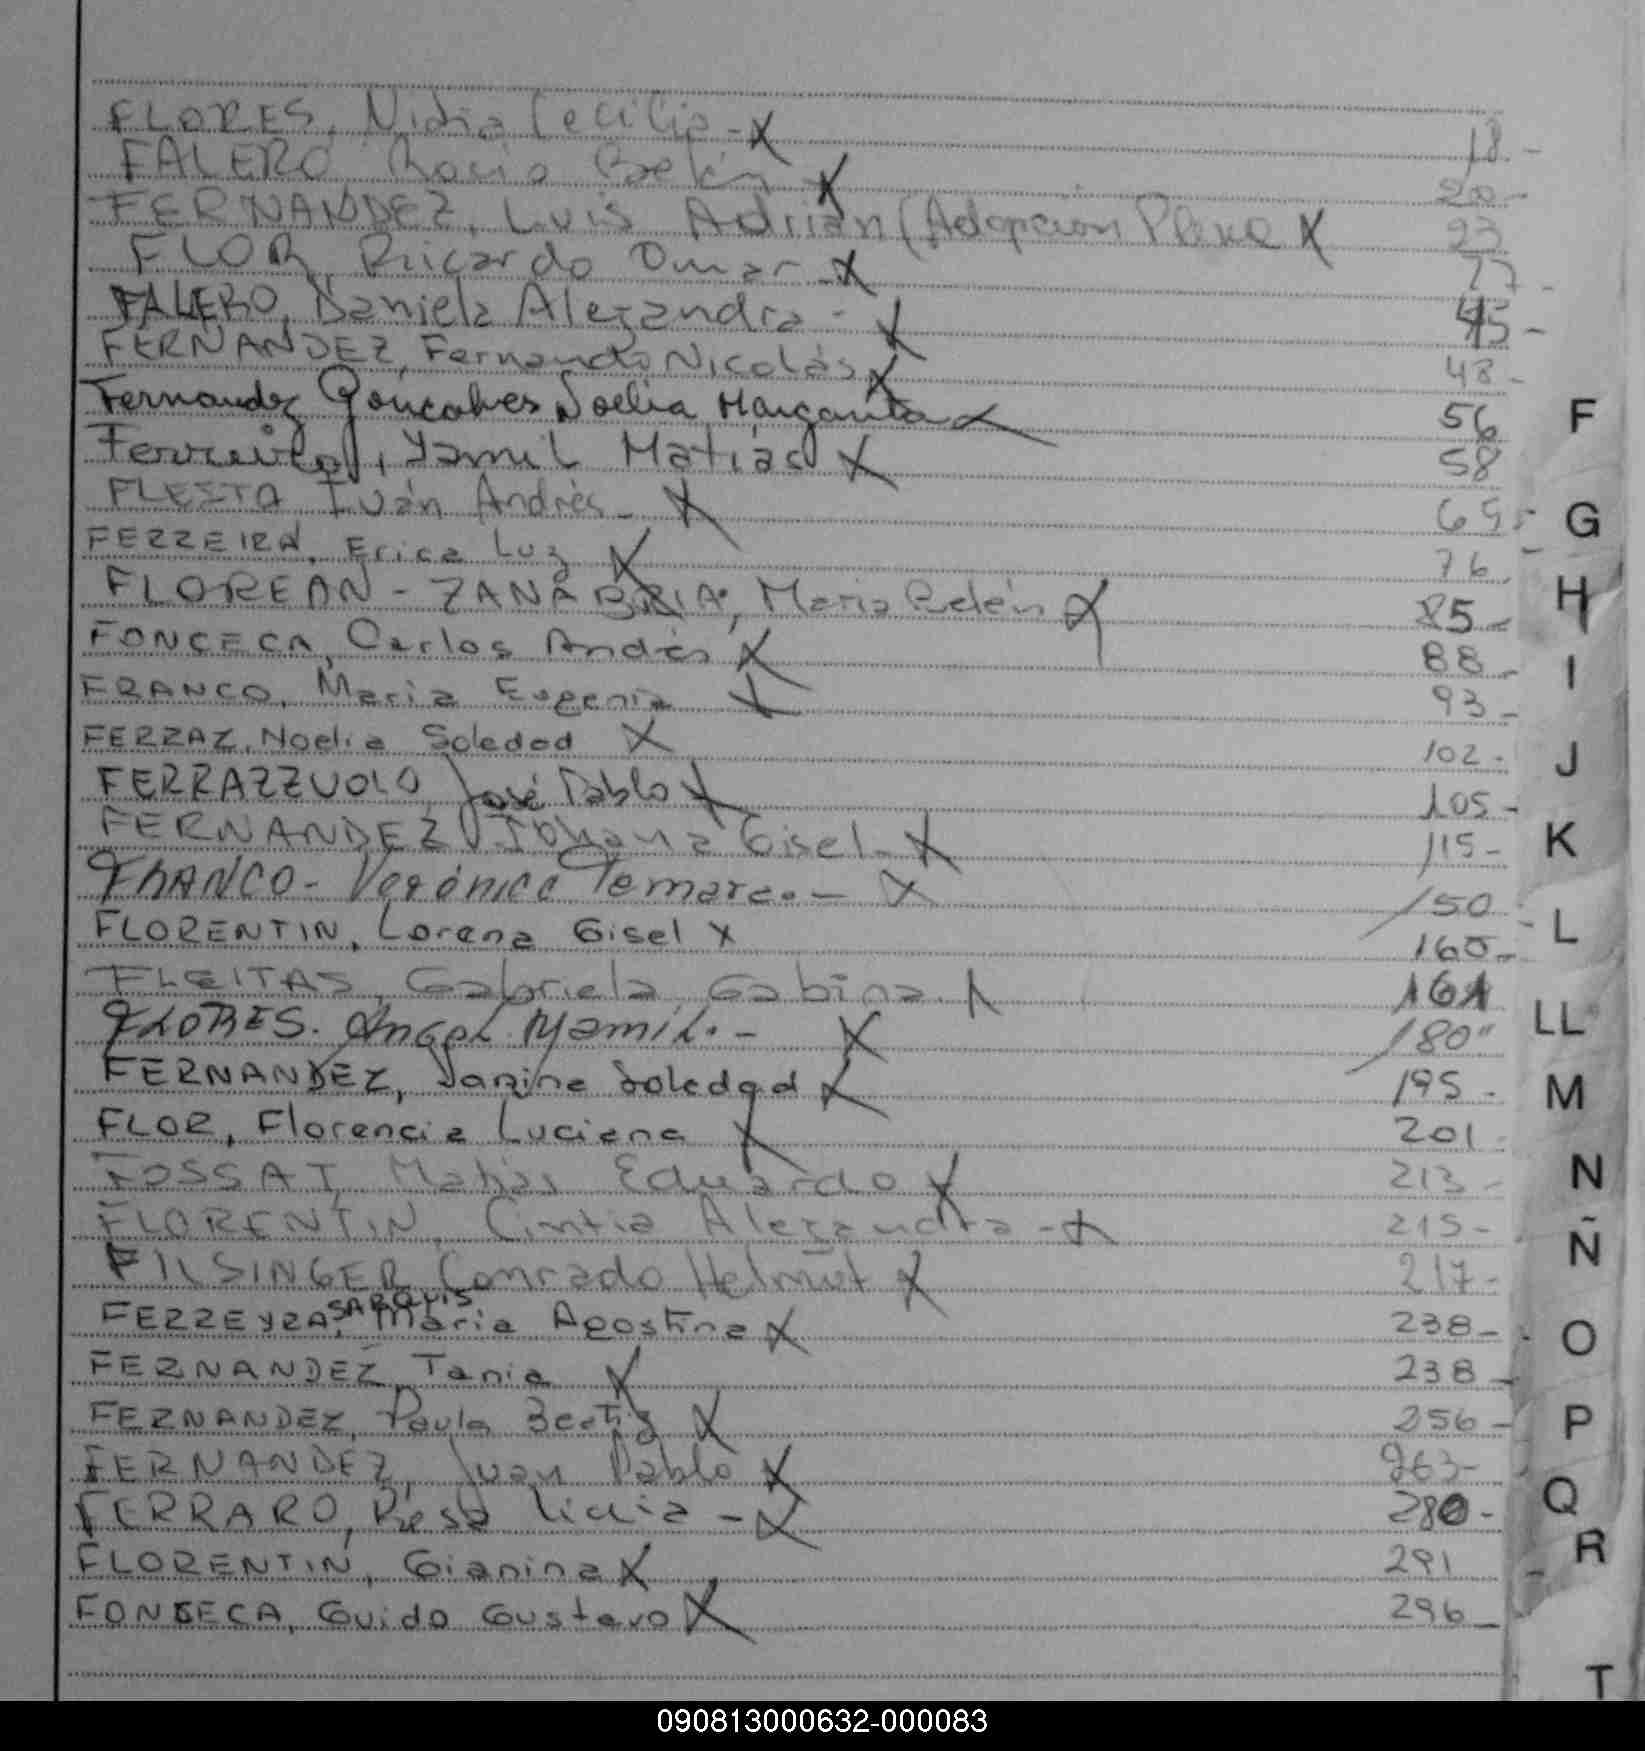 FLORES, Nidia Cecilia - X 18 -
FALERO Rocio Belén X 20 -
FERNANDEZ, Luis Adrián (Adopcion Plena X 23
FLOR, Ricardo Omar - X 27 -
FALERO, Daniela Alejandra - X 45 -
FERNANDEZ, Fernando Nicolás X 48 -
Fernandez Goncalves Noelia Margarita X 56
Ferreira, Yamil Matías X 58
FLEITA Iván Andrés - X 65 -
FERREIRA, Erica Luz X 76
FLOREAN - ZANABRIA, Maria Belén X 85 -
FONCECA, Carlos Andrés X 88 -
FRANCO, Maria Eugenia X 93 -
FERRAZ, Noelia Soledad X 102 -
FERRAZZUOLO, José Pablo X 105 -
FERNANDEZ Johana Gisel X 115 -
FRANCO - Verónica Tamara. - X 150
FLORENTIN, Lorena Gisel X 160 -
FLEITAS, Gabriela Gabina X 161
FLORES. Angel Yamil. - X 180"
FERNANDEZ, Janine Soledad X 195 -
FLOR, Florencia Luciana X 201 -
FOSSAT Matías Eduardo X 213 -
FLORENTIN, Cintia Alejandra - X 215 -
FILSINGER, Conrado Helmut X 217 -
FERREYRA, SARQUIS Maria Agostina X 238 -
FERNANDEZ, Tania X 238 -
FERNANDEZ, Paula Beatriz X 256 -
FERNANDEZ, Juan Pablo X 263 -
FERRARO, Licia - X 280 -
FLORENTIN, Gianina X 291 -
FONSECA, Guido Gustavo X 296 -
F
G
H
I
J
K
L
LL
M
N
Ñ
O
P
Q
R
T
090813000632-000083